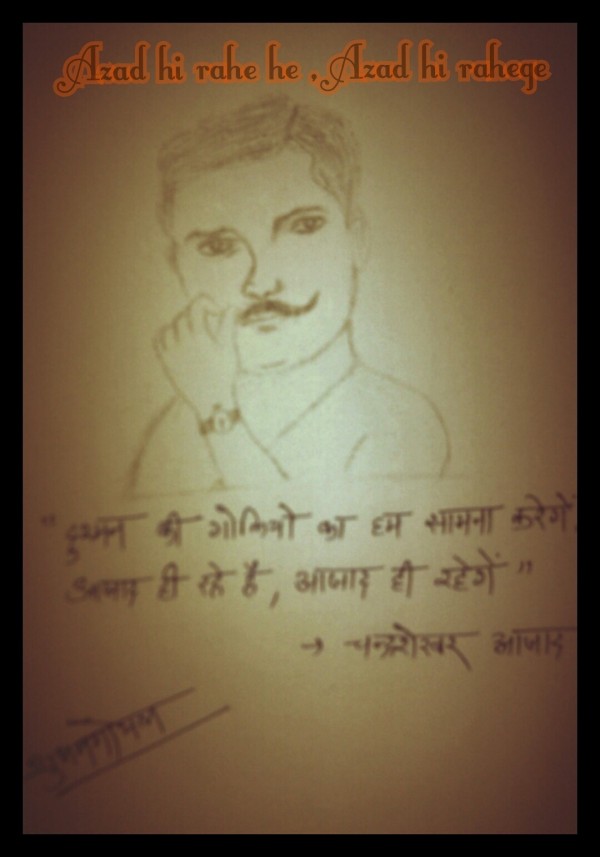 Azad hi rahe he , Azad hi rahege
"दुश्मन की गोलियों का हम सामना करेगें,
आजाद ही रहे है, आजाद ही रहेगें"
→ चन्द्रशेखर आजाद